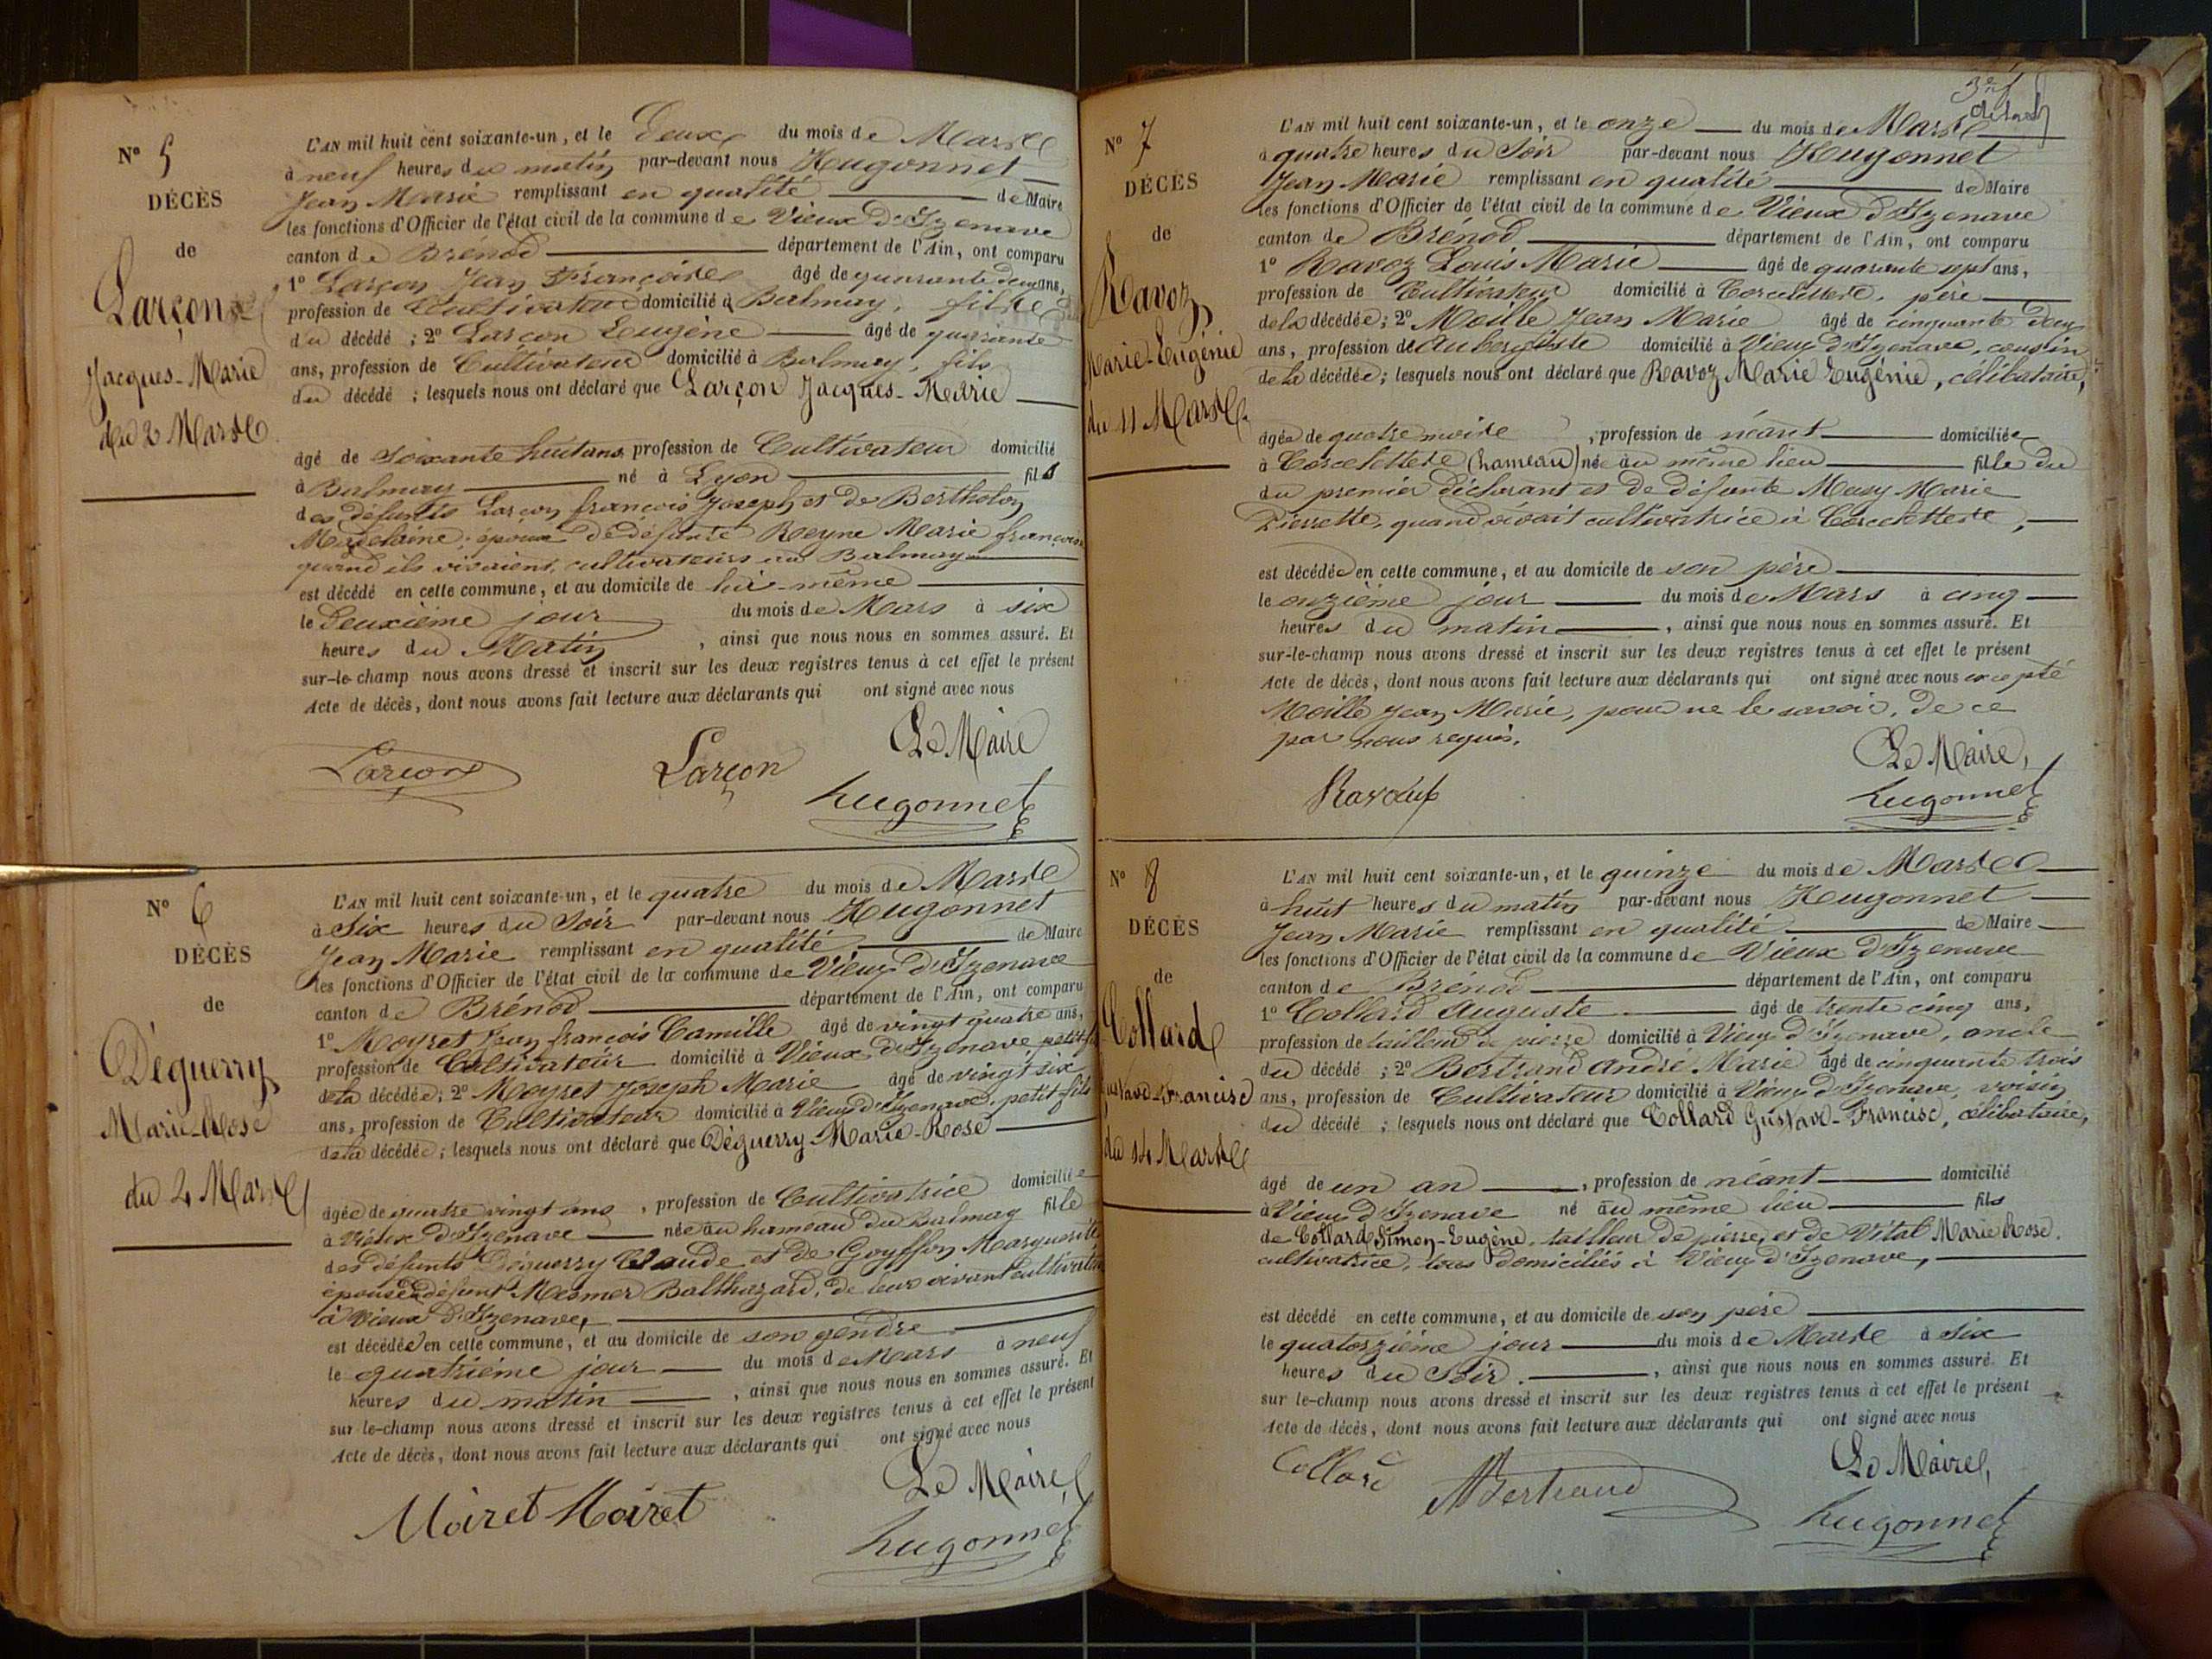 N° 5
DÉCÈS
de
Larçon
Jacques-Marie
du 2 Mars
L'AN mil huit cent soixante-un, et le Deux du mois de Mars
à neuf heures du matin par-devant nous Hugonnet
Jean Marie remplissant en qualité de Maire
les fonctions d'Officier de l'état civil de la commune de Vieux d'Izenave
canton de Brénod département de l'Ain, ont comparu
1° Larçon Jean François âgé de quarante deux ans,
profession de Cultivateur domicilié à Balmay, fils
du décédé ; 2° Larçon Eugène âgé de quarante
ans, profession de Cultivateur domicilié à Balmay, fils
du décédé ; lesquels nous ont déclaré que Larçon Jacques-Marie
âgé de soixante huit ans, profession de Cultivateur domicilié
à Balmay né à Lyon fils
des défunts Larçon françois Joseph et de Bertholon
Madelaine; époux de défunte Reyne Marie françoise
quand ils vivaient, cultivateurs au Balmay
est décédé en cette commune, et au domicile de lui-même
le Deuxième jour du mois de Mars à six
heures du Matin, ainsi que nous nous en sommes assuré. Et
sur-le-champ nous avons dressé et inscrit sur les deux registres tenus à cet effet le présent
Acte de décès, dont nous avons fait lecture aux déclarants qui ont signé avec nous
Le Maire
Larçon Larçon
hugonnet
N° 6
DÉCÈS
de
Déguerry
Marie-Rose
du 4 Mars
L'AN mil huit cent soixante-un, et le quatre du mois de Mars
à Six heures du Soir par-devant nous Hugonnet
Jean Marie remplissant en qualité de Maire
les fonctions d'Officier de l'état civil de la commune de Vieux d'Izenave
canton de Brénod département de l'Ain, ont comparu
1° Moyret Jean françois Camille âgé de vingt quatre ans,
profession de Cultivateur domicilié à Vieux d'Izenave petit fils
de la décédée; 2° Moyret Joseph Marie âgé de vingt six
ans, profession de Cultivateur domicilié à Vieux d'Izenave, petit-fils
de la décédée; lesquels nous ont déclaré que Déguerry Marie-Rose
âgée de quatre vingt ans, profession de Cultivatrice domiciliée
à Vieux d'Izenave née au hameau du Balmay fille
des défunts Déguerry Claude et de Goyffon Marguerite
épouse de défunt Mesmer Balthazard, de leur vivant cultivateurs
à Vieux d'Izenave,
est décédée en cette commune, et au domicile de son gendre
le quatrième jour du mois de Mars à neuf
heures du matin, ainsi que nous nous en sommes assuré. Et
sur-le-champ nous avons dressé et inscrit sur les deux registres tenus à cet effet le présent
Acte de décès, dont nous avons fait lecture aux déclarants qui ont signé avec nous
Le Maire,
Moiret Moiret
hugonnet
N° 7
DÉCÈS
de
Ravoz
Marie-Eugénie
du 11 Mars
L'AN mil huit cent soixante-un, et le onze du mois de Mars
à quatre heures du Soir par-devant nous Hugonnet
Jean Marie remplissant en qualité de Maire
les fonctions d'Officier de l'état civil de la commune de Vieux d'Izenave
canton de Brénod département de l'Ain, ont comparu
1° Ravoz Louis Marie âgé de quarante sept ans,
profession de Cultivateur domicilié à Corcelette, père
de la décédée; 2° Moille Jean Marie âgé de cinquante deux
ans, profession de Aubergiste domicilié à Vieux d'Izenave, cousin
de la décédée; lesquels nous ont déclaré que Ravoz Marie Eugénie, célibataire,
âgée de quatre mois, profession de néant domiciliée
à Corcelette (hameau) née au même lieu fille du
du premier déclarant et de défunte Masy Marie
Pierrette, quand vivait cultivatrice à Corcelette,
est décédée en cette commune, et au domicile de son père
le onzième jour du mois de Mars à cinq
heures du matin, ainsi que nous nous en sommes assuré. Et
sur-le-champ nous avons dressé et inscrit sur les deux registres tenus à cet effet le présent
Acte de décès, dont nous avons fait lecture aux déclarants qui ont signé avec nous excepté
Moille Jean Marie, pour ne le savoir, de ce
par nous requis.
Le Maire,
hugonnet
N° 8
DÉCÈS
de
Collard
Gustave-Francisc
du 14 Mars
L'AN mil huit cent soixante-un, et le quinze du mois de Mars
à huit heures du matin par-devant nous Hugonnet
Jean Marie remplissant en qualité de Maire
les fonctions d'Officier de l'état civil de la commune de Vieux d'Izenave
canton de Brénod département de l'Ain, ont comparu
1° Collard Auguste âgé de trente cinq ans,
profession de tailleur de pierre domicilié à Vieux d'Izenave, oncle
du décédé ; 2° Bertrand André Marie âgé de cinquante trois
ans, profession de Cultivateur domicilié à Vieux d'Izenave, voisin
du décédé ; lesquels nous ont déclaré que Collard Gustave-Francisc, célibataire,
âgé de un an, profession de néant domicilié
à Vieux d'Izenave né au même lieu fils
de Collard Simon-Eugène, tailleur de pierre, et de Vital Marie Rose.
cultivatrice, tous domiciliés à Vieux d'Izenave,
est décédé en cette commune, et au domicile de son père
le quatorzième jour du mois de Mars à Six
heures du Soir, ainsi que nous nous en sommes assuré. Et
sur le-champ nous avons dressé et inscrit sur les deux registres tenus à cet effet le présent
Acte de décès, dont nous avons fait lecture aux déclarants qui ont signé avec nous
Collard Bertrand Le Maire,
hugonnet